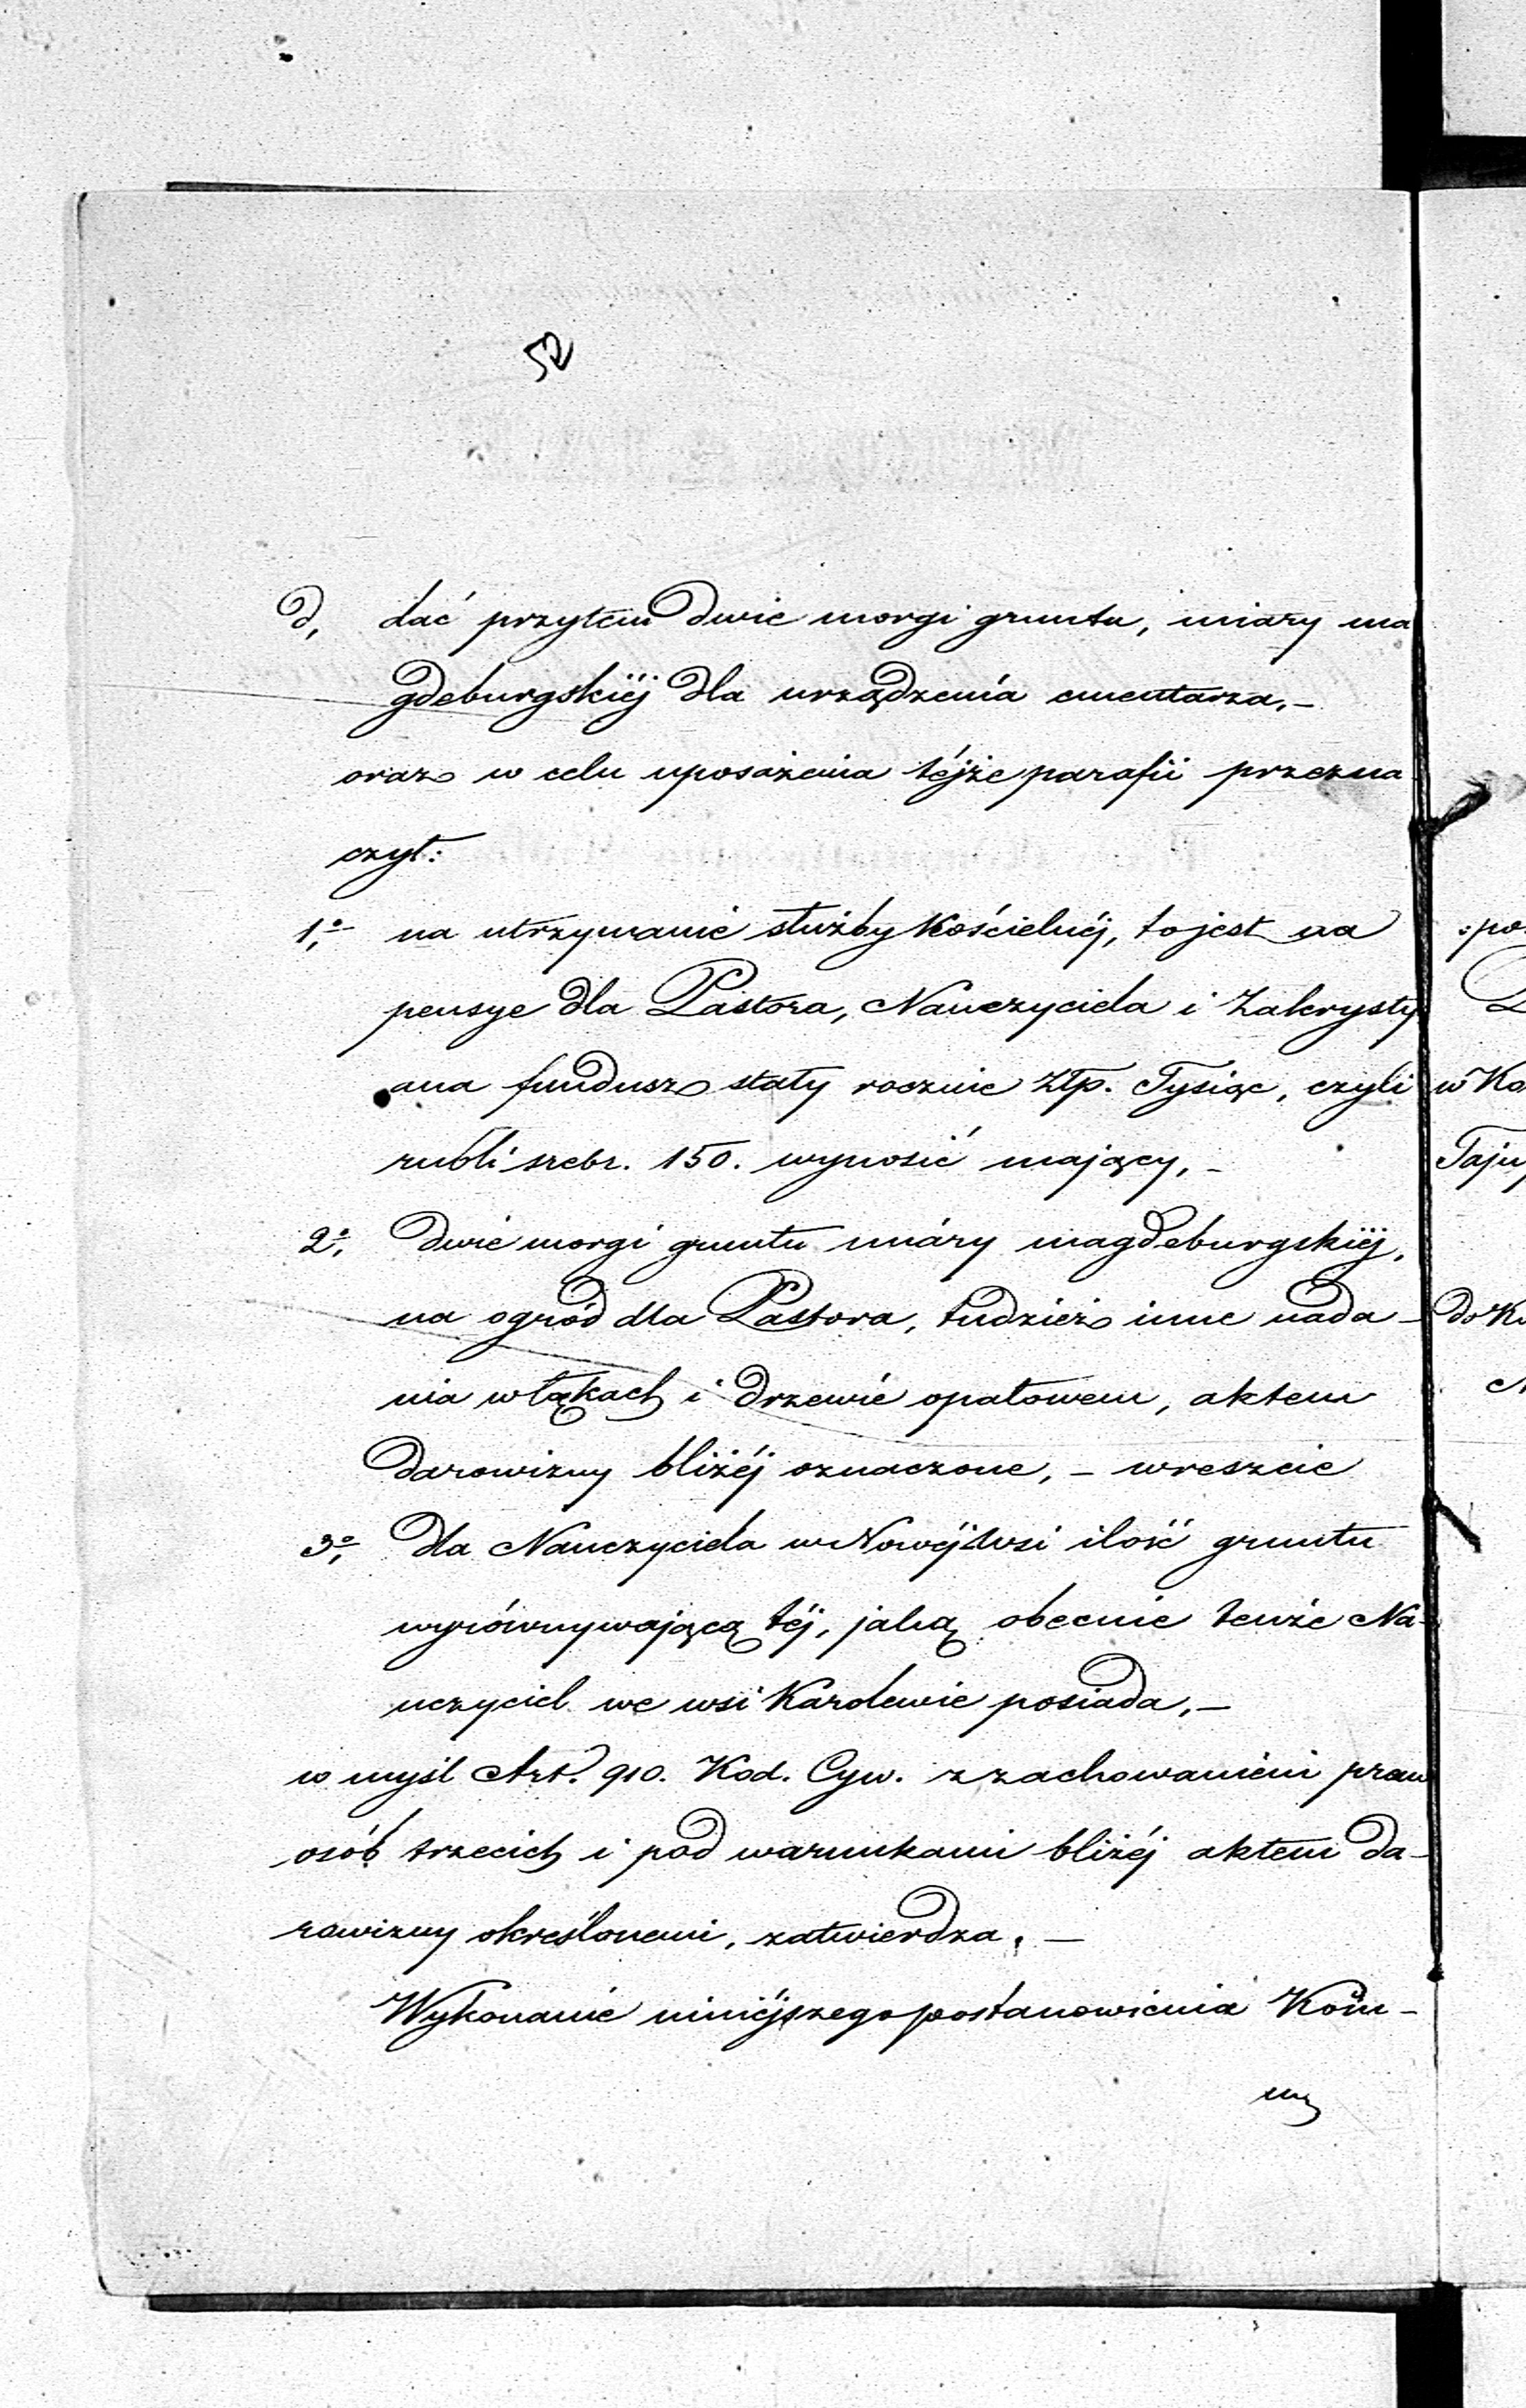 52
d, dać przytem dwie morgi gruntu, miary ma
gdeburgskiéj dla urządzenia cmentarza,–
oraz w celu uposażenia téjże parafii przezna
czył:
1,o na utrzymanie służby Kościelnéj, to jest na
pensye dla Pastora, Nauczyciela i Zakrysty
ana fundusz stały rocznie Złp. Tysiąc, czyli
rubli srebr. 150. wynosić mający, –
2,o dwie morgi gruntu miáry magdeburgskiéj,
na ogród dla Pastora, tudzież inne nada –
nia w łąkach i drzewie opałowem, aktem
darowizny bliżéj oznaczone, – wreszcie
3,o dla Nauczyciela w Nowéj Wsi ilość gruntu
wyrównywającą téj, jaką obecnie tenże Na-
uczyciel we wsi Karolewie posiada, –
w myśl Art. 910. Kod. Cyw. z zachowaniem praw
osób trzecich i pod warunkami bliżéj aktem da-
rowizny określonemi, zatwierdza. –
Wykonanie niniéjszego postanowienia Kom̄ –
:po
w Ko
Taju
do K